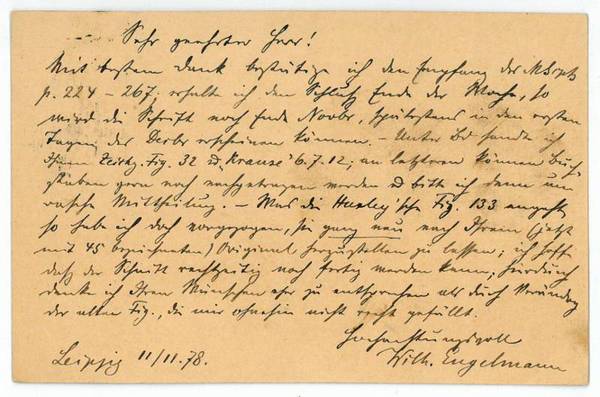 Sehr geehrter Herr!
Mit bestem Dank bestätige ich den Empfang des MSrpts
p. 224 – 267; erhalte ich den Schluß Ende der Woche, so
wird die Schrift noch Ende Novbr, spätestens in den ersten
Tagen des Decbr erscheinen können. – Unter Bd sandte ich
Ihnen Fig. 32 u. Krause 6. 7. 12; an letzteren können Buch-
staben gern noch nachgetragen werden u. bitte ich dann um
rasche Mittheilung. – Was die Huxley'sche Fig. 133 angeht,
so habe ich doch vorgezogen, sie ganz neu nach Ihrem (jetzt
mit 45 bezeichneten) Original herzustellen zu lassen; ich hoffe
daß der Schnitt rechtzeitig noch fertig werden kann, hierdurch
denke ich Ihren Wünschen eher zu entsprechen als durch Veränderung
der alten Fig., die mir ohnehin nicht recht gefällt.
Hochachtungsvoll
Leipzig 11/11. 78. Wilh. Engelmann